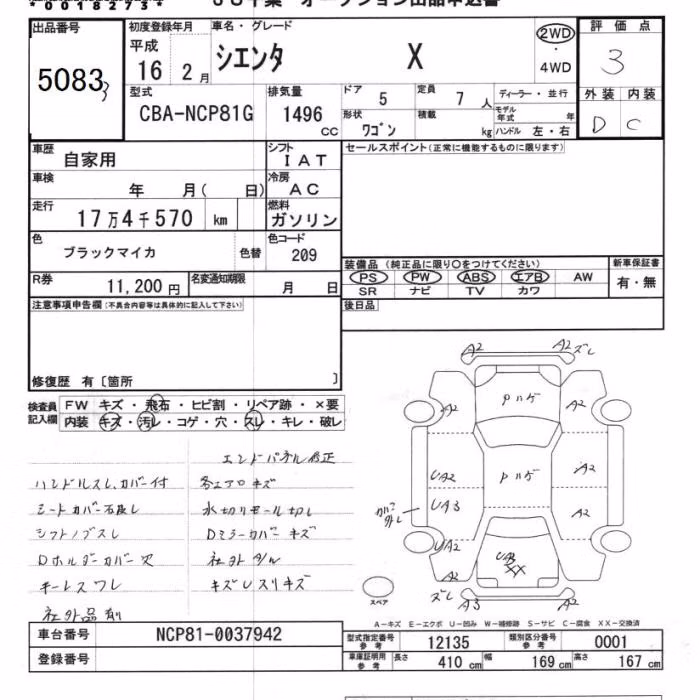 *00182731*
出品番号 5083
初度登録年月 平成16 2月
車名・グレード シエンタ X
2WD・4WD
評価点 3
外装 内装
D C
型式 CBA-NCP81G
排気量 1496 CC
ドア 5
定員 7人
ディーラー・並行
形状 ワゴン
積載 kg
モデル年式 年
ハンドル 左・右
車歴 自家用
シフト IAT
セールスポイント(正常に機能するものに限ります)
車検 年 月( 日)
冷房 AC
走行 17万4千570 km
燃料 ガソリン
色 ブラックマイカ 色替
色コード 209
装備品(純正品に限り○をつけてください)
PS PW ABS エアB AW
SR ナビ TV カワ
新車保証書 有・無
R券 11,200円
名変通知期限 月 日
後日品
注意事項申告欄(不具合内容等は具体的に記入して下さい)
修復歴 有〔箇所 〕
検査員記入欄
FW キズ・飛石・ヒビ割・リペア跡・×要
内装 キズ・汚レ・コゲ・穴・スレ・キレ・破レ
エンドパネル修正
ハンドルスレ、カバー付 各エアロキズ
シートカバー石灰し 水切りモール切し
シフトノブスレ Dミラーカバーキズ
Dホルダーカバー欠 社外タル
キーレスワレ キズレスリキズ
社外品有
A2 A2 ズレ
A2 ハゲ A2
UA2 ハゲ A2
カバー外レ UA3 A2
UA2 UA3 XX
A2 A2
ズレ A3 A2
スペア
A-キズ E-エクボ U-凹み W-補修跡 S-サビ C-腐食 XX-交換済
車台番号 NCP81-0037942
登録番号
型式指定番号参考 12135
類別区分番号参考 0001
車庫証明用参考 長さ 410 cm 幅 169 cm 高さ 167 cm